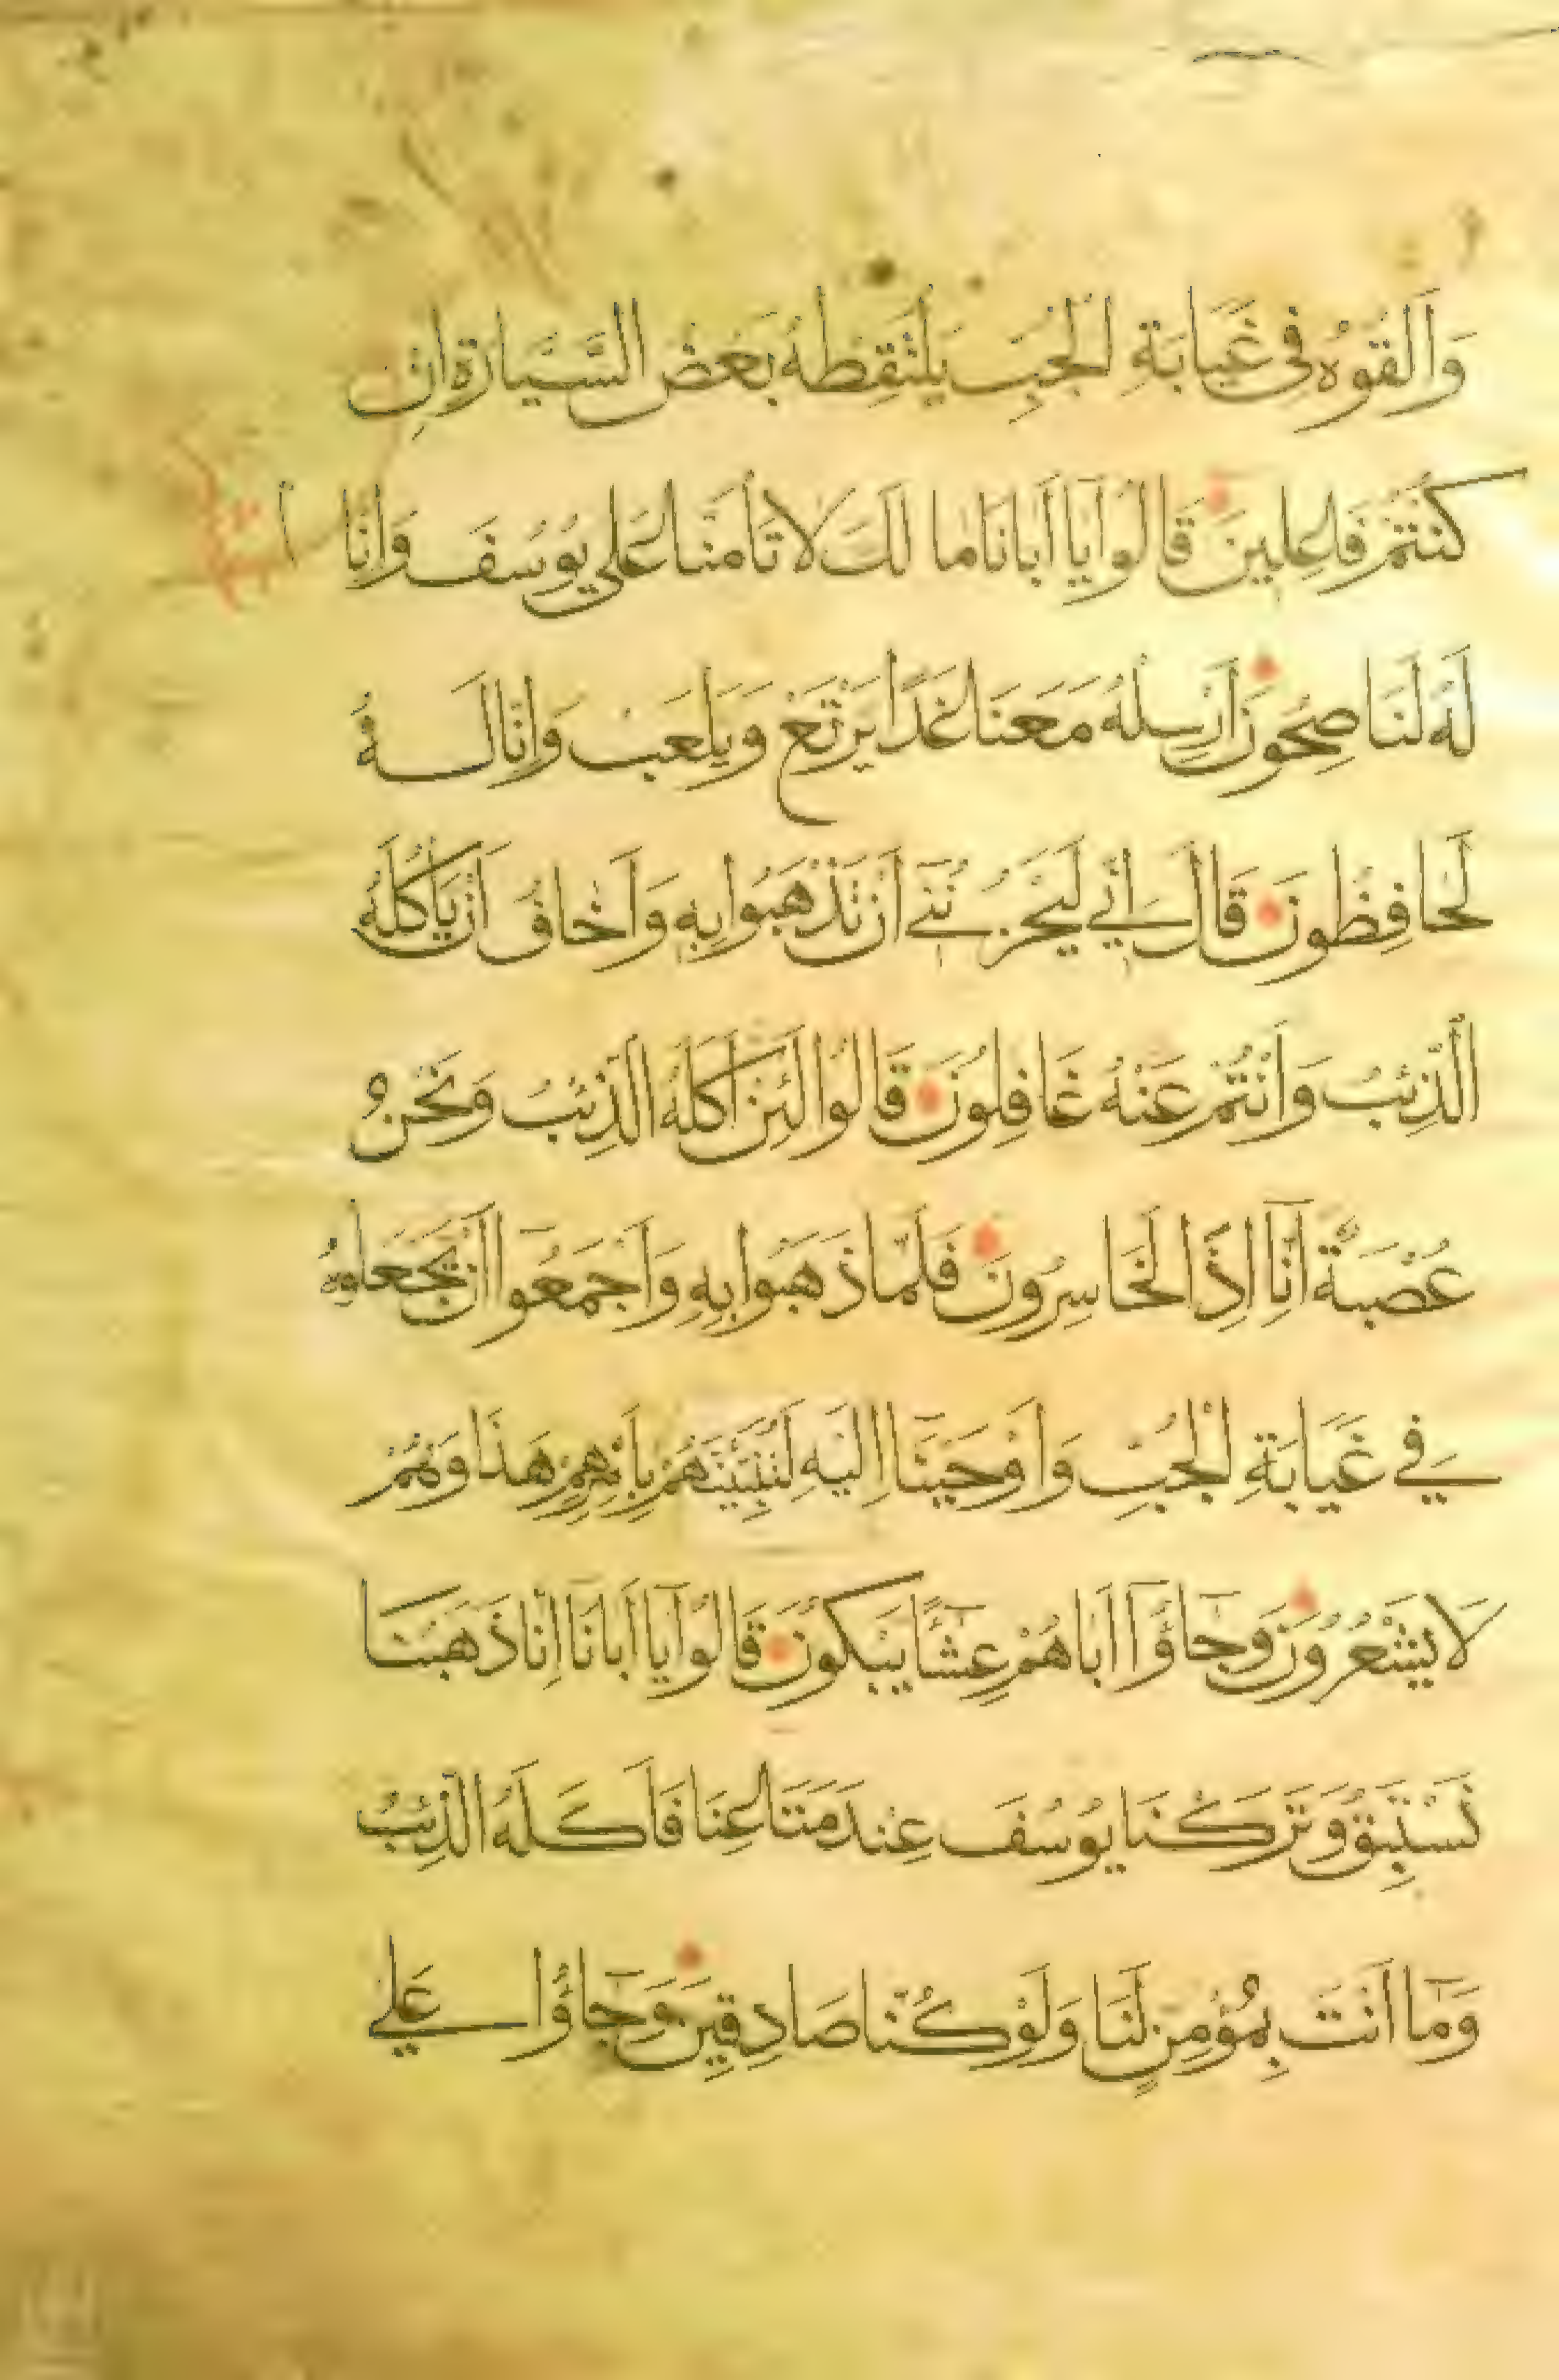 وَاَلْقُوهُ فِى غَيَابَةِ الْجُبِّ يَلْتَقِطْهُ بَعْضُ السَّيَّارَةِ اِنْ
كُنْتُمْ فَاعِلِينَ قَالُوا يَا اَبَانَا مَا لَكَ لَا تَأْمَنَّا عَلَى يُوسُفَ وَاِنَّا
لَهُ لَنَاصِحُونَ اَرْسِلْهُ مَعَنَا غَدًا يَرْتَعْ وَيَلْعَبْ وَاِنَّا لَهُ
لَحَافِظُونَ قَالَ اِنِّي لَيَحْزُنُنِي اَنْ تَذْهَبُوا بِهِ وَاَخَافُ اَنْ يَأْكُلَهُ
الذِّئْبُ وَاَنْتُمْ عَنْهُ غَافِلُونَ قَالُوا لَئِنْ اَكَلَهُ الذِّئْبُ وَنَحْنُ
عُصْبَةٌ اِنَّا اِذًا لَخَاسِرُونَ فَلَمَّا ذَهَبُوا بِهِ وَاَجْمَعُوا اَنْ يَجْعَلُوهُ
فِي غَيَابَةِ الْجُبِّ وَاَوْحَيْنَا اِلَيْهِ لَتُنَبِّئَنَّهُمْ بِاَمْرِهِمْ هَذَا وَهُمْ
لَا يَشْعُرُونَ وَجَاؤُا اَبَاهُمْ عِشَاءً يَبْكُونَ قَالُوا يَا اَبَانَا اِنَّا ذَهَبْنَا
نَسْتَبِقُ وَتَرَكْنَا يُوسُفَ عِنْدَ مَتَاعِنَا فَاَكَلَهُ الذِّئْبُ
وَمَا اَنْتَ بِمُؤْمِنٍ لَنَا وَلَوْ كُنَّا صَادِقِينَ وَجَاؤُا عَلَى